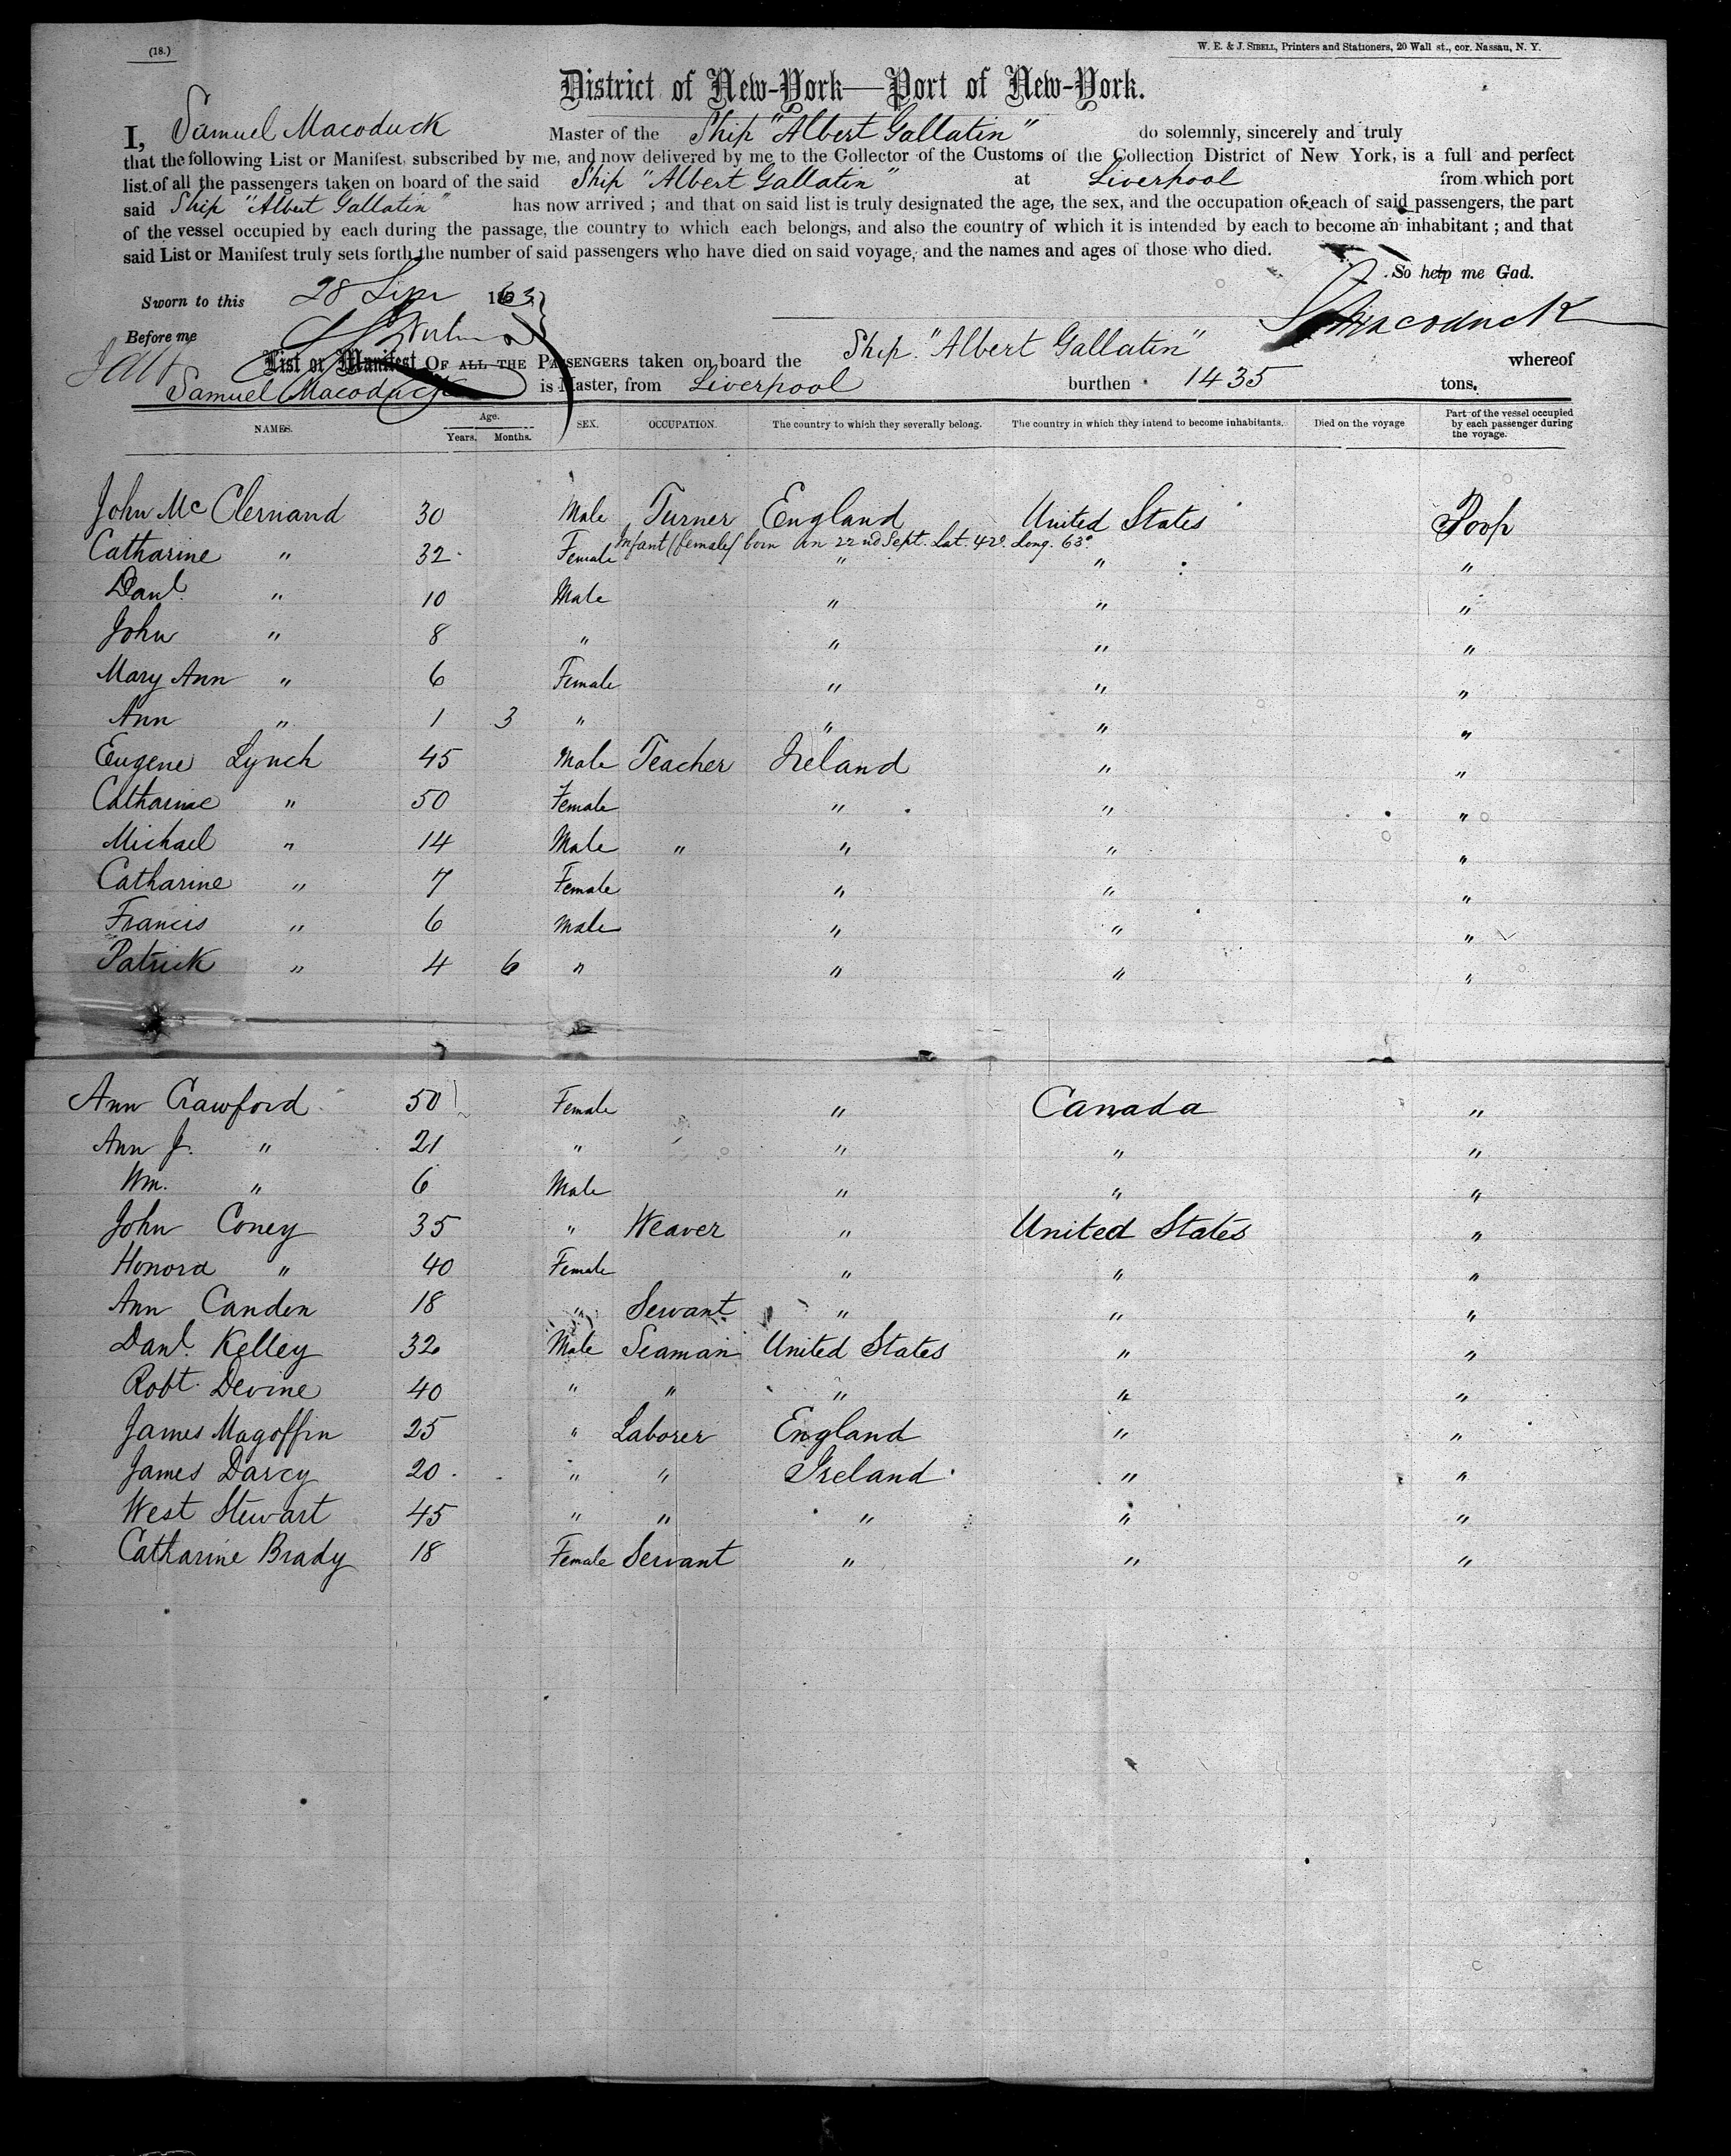 (18.)
W. E. & J. SIBELL, Printers and Stationers, 20 Wall st., cor. Nassau, N. Y.
District of New-York—Port of New-York.
I, Samuel Macoduck Master of the Ship "Albert Gallatin" do solemnly, sincerely and truly
that the following List or Manifest, subscribed by me, and now delivered by me to the Collector of the Customs of the Collection District of New York, is a full and perfect
list of all the passengers taken on board of the said Ship "Albert Gallatin" at Liverpool from which port
said Ship "Albert Gallatin" has now arrived ; and that on said list is truly designated the age, the sex, and the occupation of each of said passengers, the part
of the vessel occupied by each during the passage, the country to which each belongs, and also the country of which it is intended by each to become an inhabitant ; and that
said List or Manifest truly sets forth the number of said passengers who have died on said voyage, and the names and ages of those who died.
So help me God.
Sworn to this 28 1863
S Macoduck
Before me
List or Manifest OF ALL THE PASSENGERS taken on board the Ship "Albert Gallatin" whereof
Samuel Macoduck is Master, from Liverpool burthen 1435 tons.
NAMES. Age. Years. Months. SEX. OCCUPATION. The country to which they severally belong. The country in which they intend to become inhabitants. Died on the voyage Part of the vessel occupied by each passenger during the voyage.
John Mc Clernand 30 Male Turner England United States Poop
Infant (female) born on 22nd Sept. Lat. 42° Long. 63°
Catharine " 32 Female " " "
Danl. " 10 Male " " "
John " 8 " " " "
Mary Ann " 6 Female " " "
Ann " 1 3 " " " "
Eugene Lynch 45 Male Teacher Ireland " "
Catharine " 50 Female " " "
Michael " 14 Male " " " "
Catharine " 7 Female " " "
Francis " 6 Male " " "
Patrick " 4 6 " " " "
Ann Crawford 50 Female " Canada "
Ann J. " 21 " " " "
Wm. " 6 Male " " "
John Coney 35 " Weaver " United States "
Honora " 40 Female " " "
Ann Canden 18 " Servant " " "
Danl. Kelley 32 Male Seaman United States " "
Robt. Devine 40 " " " " "
James Magoffin 25 " Laborer England " "
James Darcy 20 " " Ireland " "
West Stewart 45 " " " " "
Catharine Brady 18 Female Servant " " "